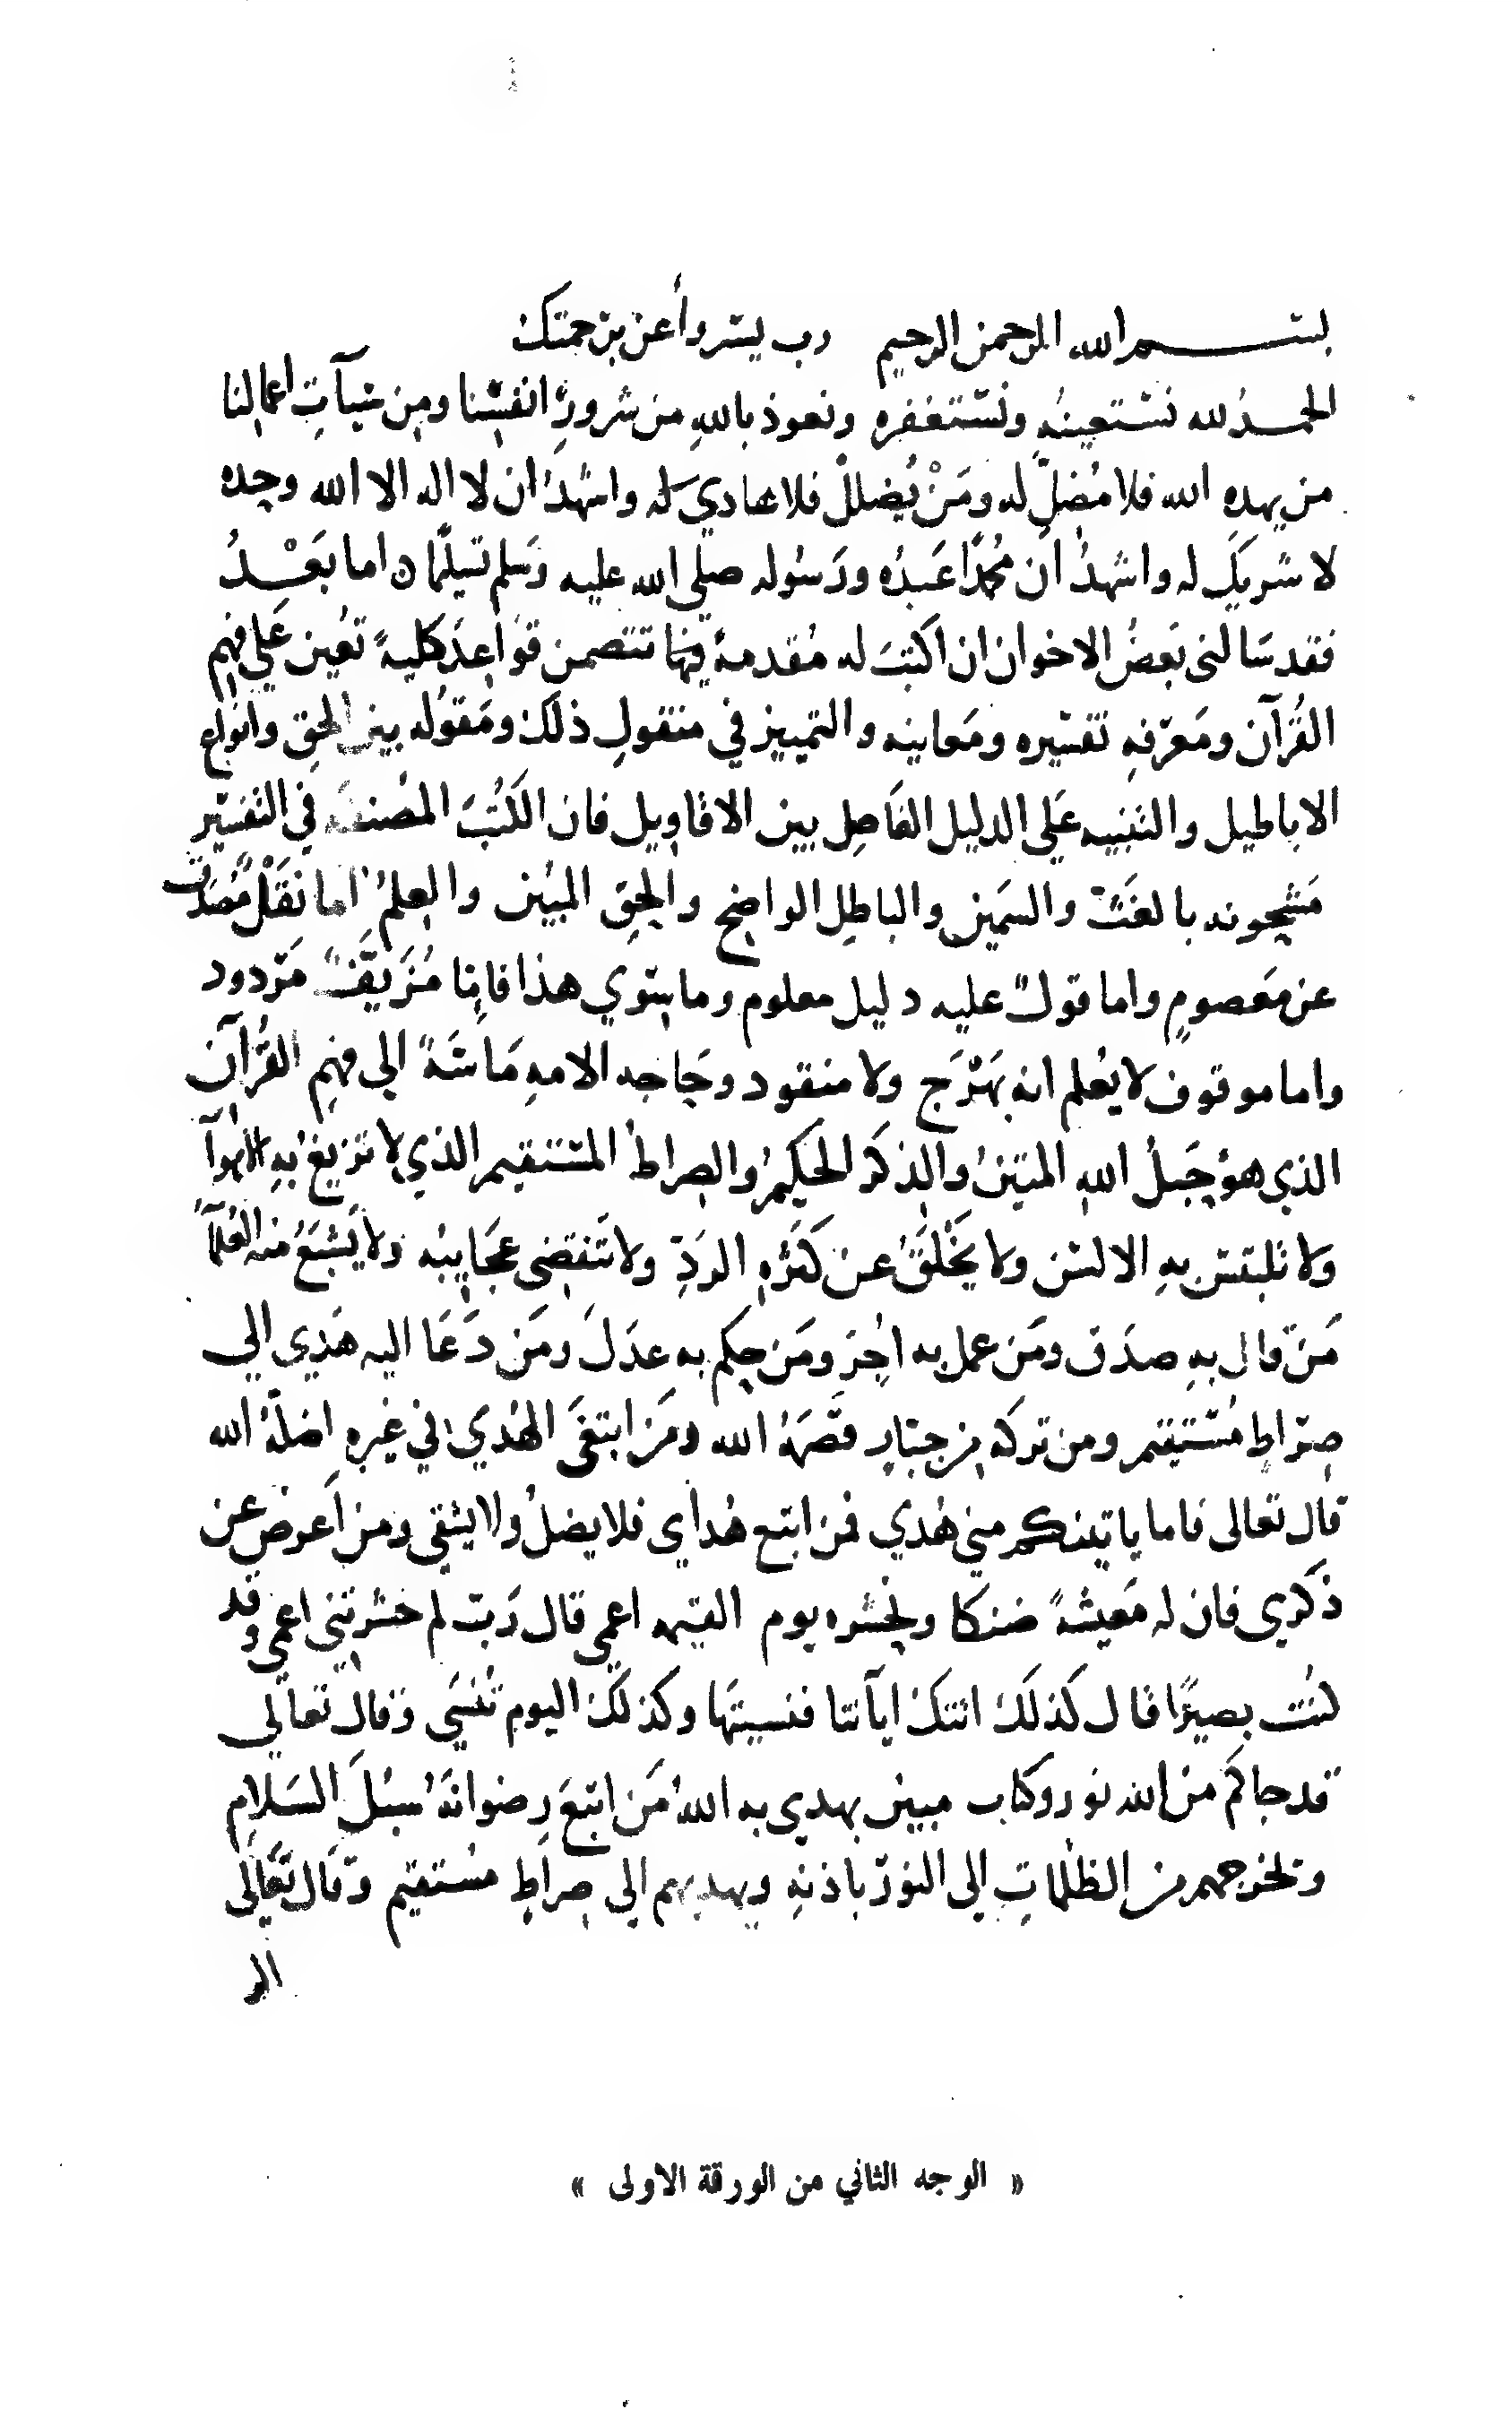 بسم الله الرحمن الرحيم رب يسر وأعن برحمتك
الحمد لله نستعينه ونستغفره ونعوذ بالله من شرور انفسنا ومن سيآت اعمالنا
من يهده الله فلا مُضِلّ له ومَنْ يُضلل فلا هادي له واشهدُ ان لا اله الا الله وحده
لا شريكَ له واشهدُ ان مُحمّدًا عَبدُه ورَسُوله صلى الله عليه وَسلم تسليمًا ن اما بَعْـدُ
فقد سَالنى بَعضُ الاخوان ان اكتبَ له مُقدمة فيها تتضمن قوَاعدَ كلية تعُين عَلي فهم
القُرآن ومَعرفهِ تفسيره ومَعانيه والتمييز في منقولِ ذلك ومَعقوُله بين الحق وانواع
الاباطيل والتنبيه عَلي الدليل الفَاصِل بين الاقاويل فان الكُتُبَ المصُنفه في التفسير
مَشحونه بالغَثّ والسَمين والباطِل الواضح والحِق المبين والعِلمُ اما نَقْل مُصَدّق
عن مَعصومٍ واما قولٌ عليه دليل معلوم وما سِوي هذا فاِما مُزَيَّفٌ مَردود
واما موقوف لا يُعلم انه بَهْرَج ولا منقود وحَاجه الامهِ مَاسّة الي فهمِ القُرآن
الذي هوَ حَبلُ اللهِ المتينُ والذكر الحكيمُ والصراطُ المستقيم الذي لا تزيغُ بهِ الاهوآ
ولا تلبتس بهِ الالسن ولا يَخْلَقُ عن كثَرهِ الردِّ ولا تَنقضى عجَايبُه ولا يَشبَعُ منه العُلمآءُ
مَن قال بهِ صدَق ومَن عمل به اُجِر ومَن حكم به عدَلَ ومَن دَعَا اليه هَدي الي
صرَاطٍ مُستقيم ومن تركه مِن جبّارٍ قصَمَهُ الله ومَن ابتغَى الهُدي في غيرهِ اضلّهُ الله
قال تعالى فاما ياتينكم مني هُدي فمن اتبع هُدأي فلا يضلُ ولا يشقي ومن اَعرض عن
ذكري فان له مَعيشةً ضنكا ونحشره يوم القيمه اعمي قال رَب لم حشرتني اعمي وقد
كُنت بصيرًا قال كَذلكَ اتتكَ ايآتنا فنسيتَها وكذلكَ اليوم تُنسَي وَقال تعالي
قد جاكم من الله نور وكتاب مبين يهدي به اللهُ مَن اتبعَ رِضوانَهُ سبُلَ السَلامِ
ويخرجهم من الظلماتِ الى النورّ باذنهِ ويهديهم الى صِراطٍ مسُتقيم وَقالَ تعَالَى
الر
« الوجه الثاني من الورقة الاولى »